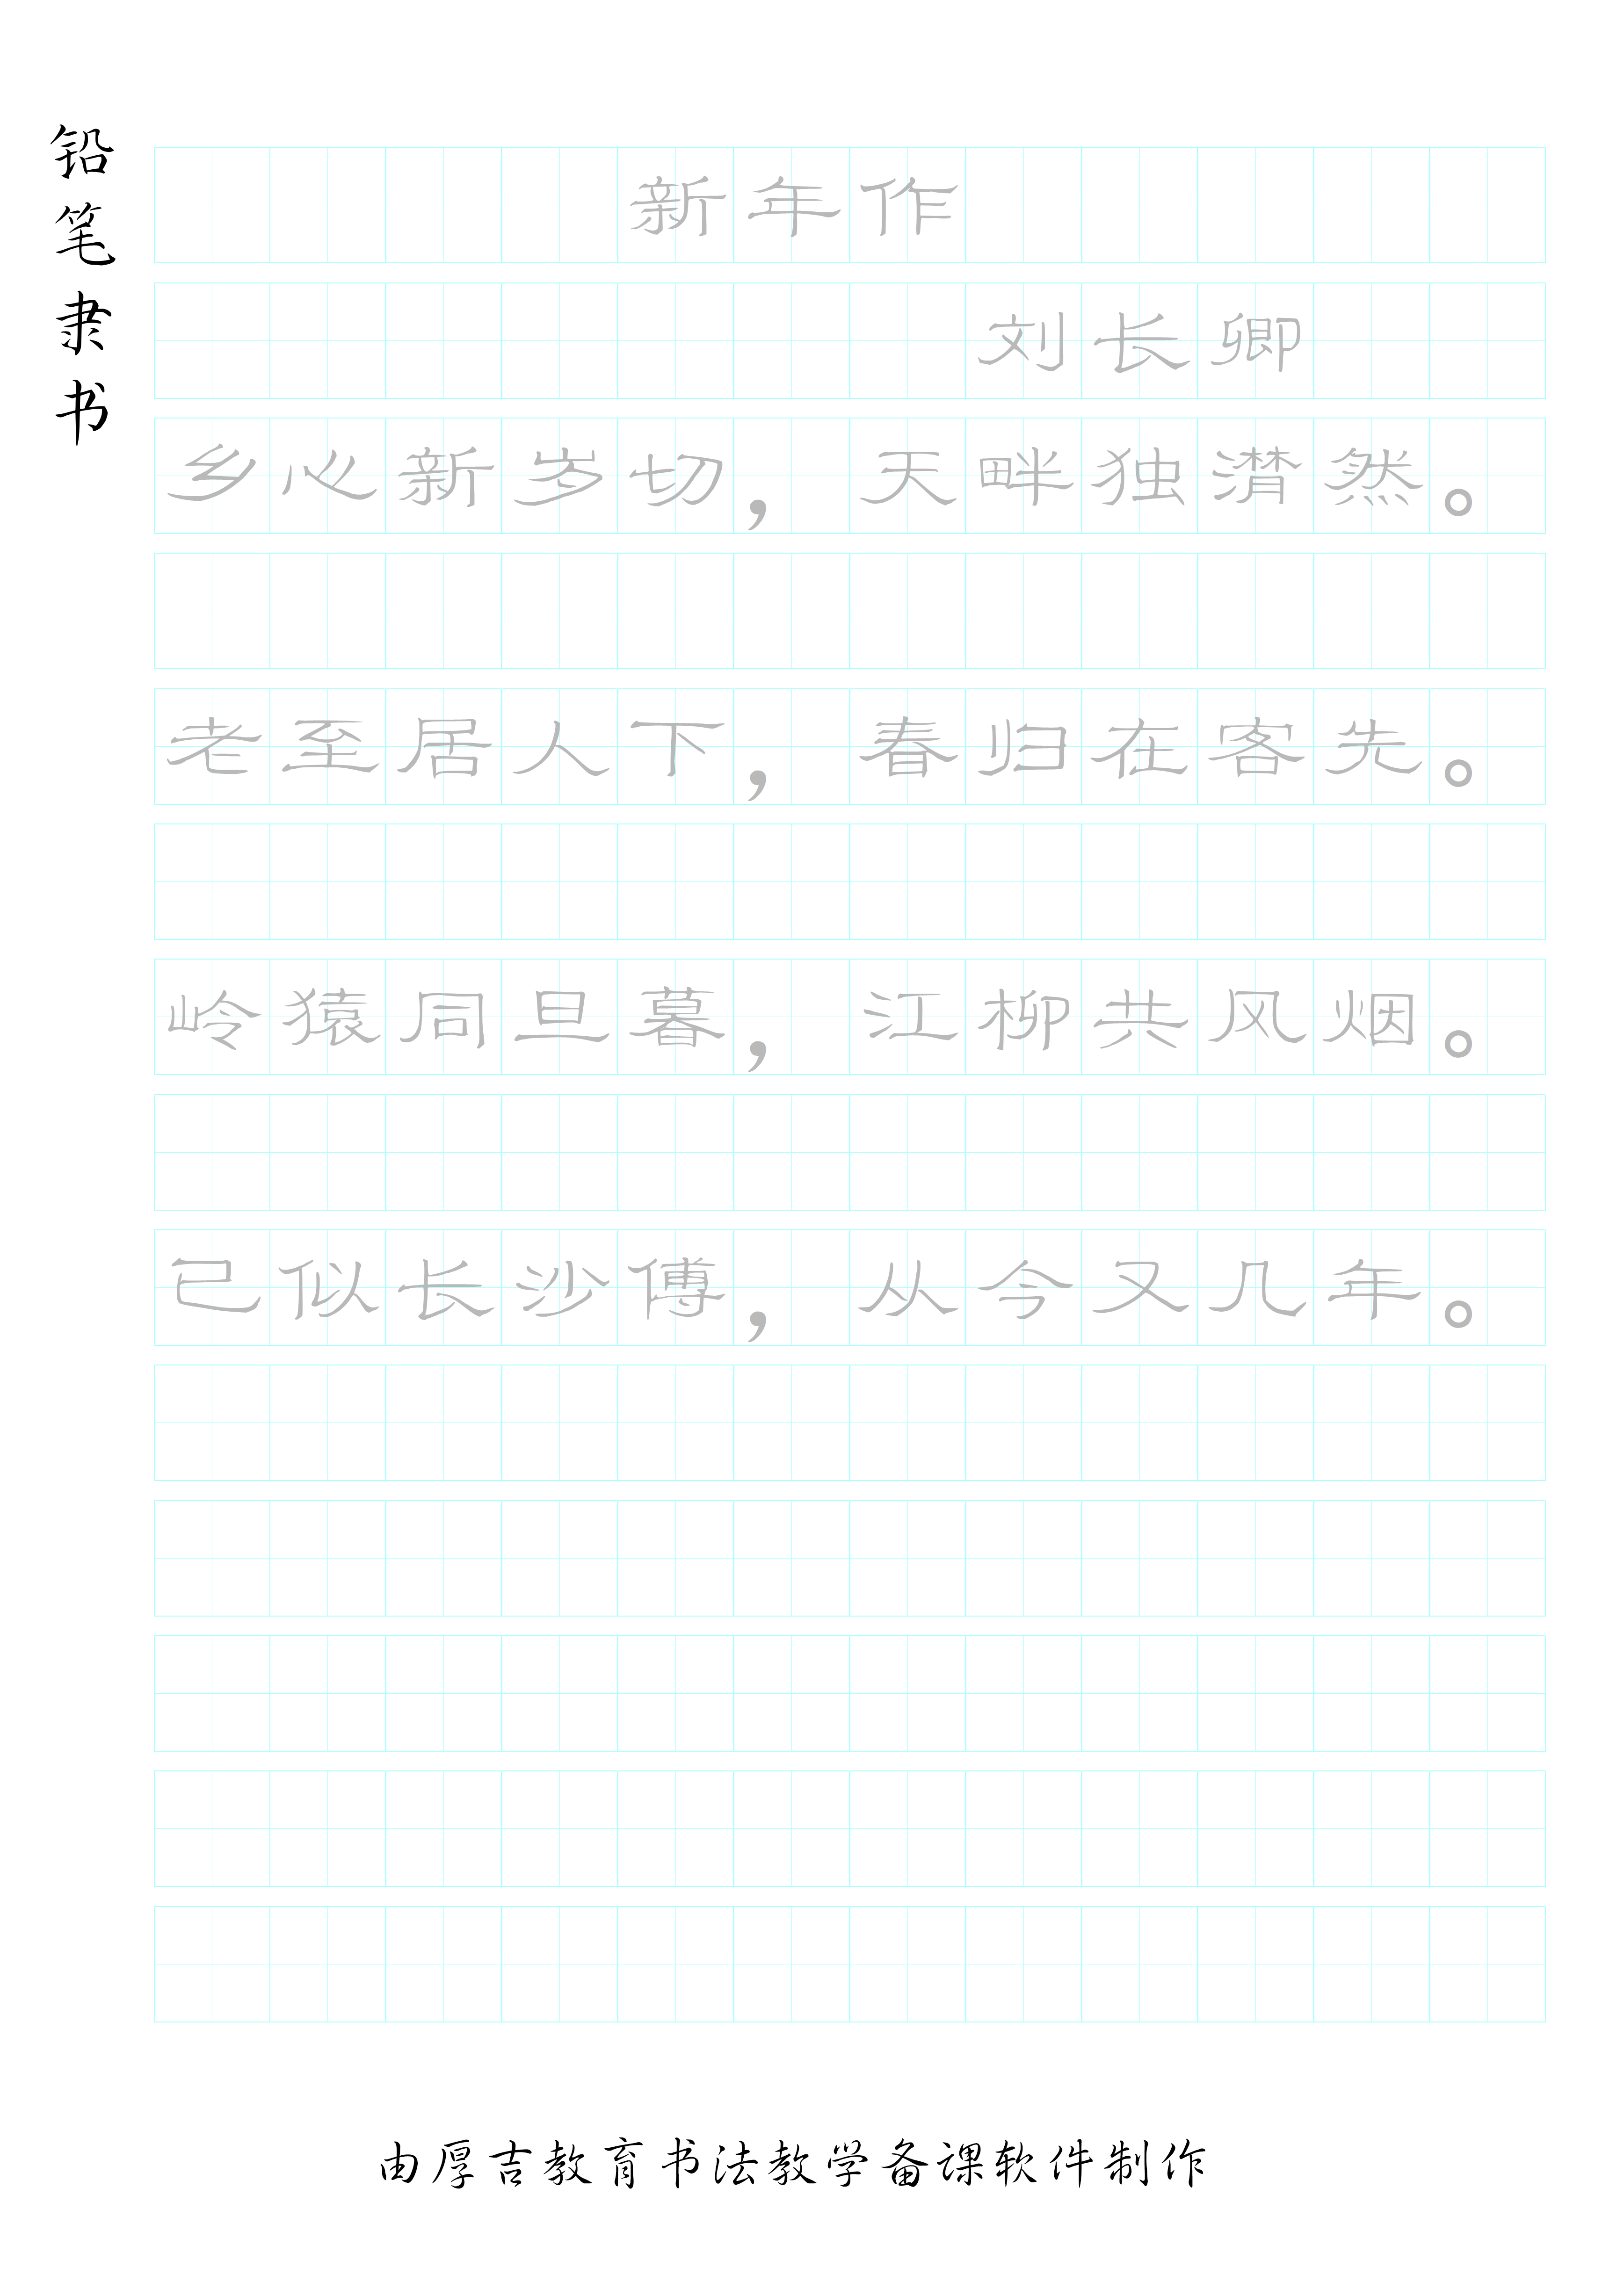 铅笔隶书
新年作
刘长卿
乡心新岁切，天畔独潸然。
老至居人下，春归在客先。
岭猿同旦暮，江柳共风烟。
已似长沙傅，从今又几年。
由厚吉教育书法教学备课软件制作